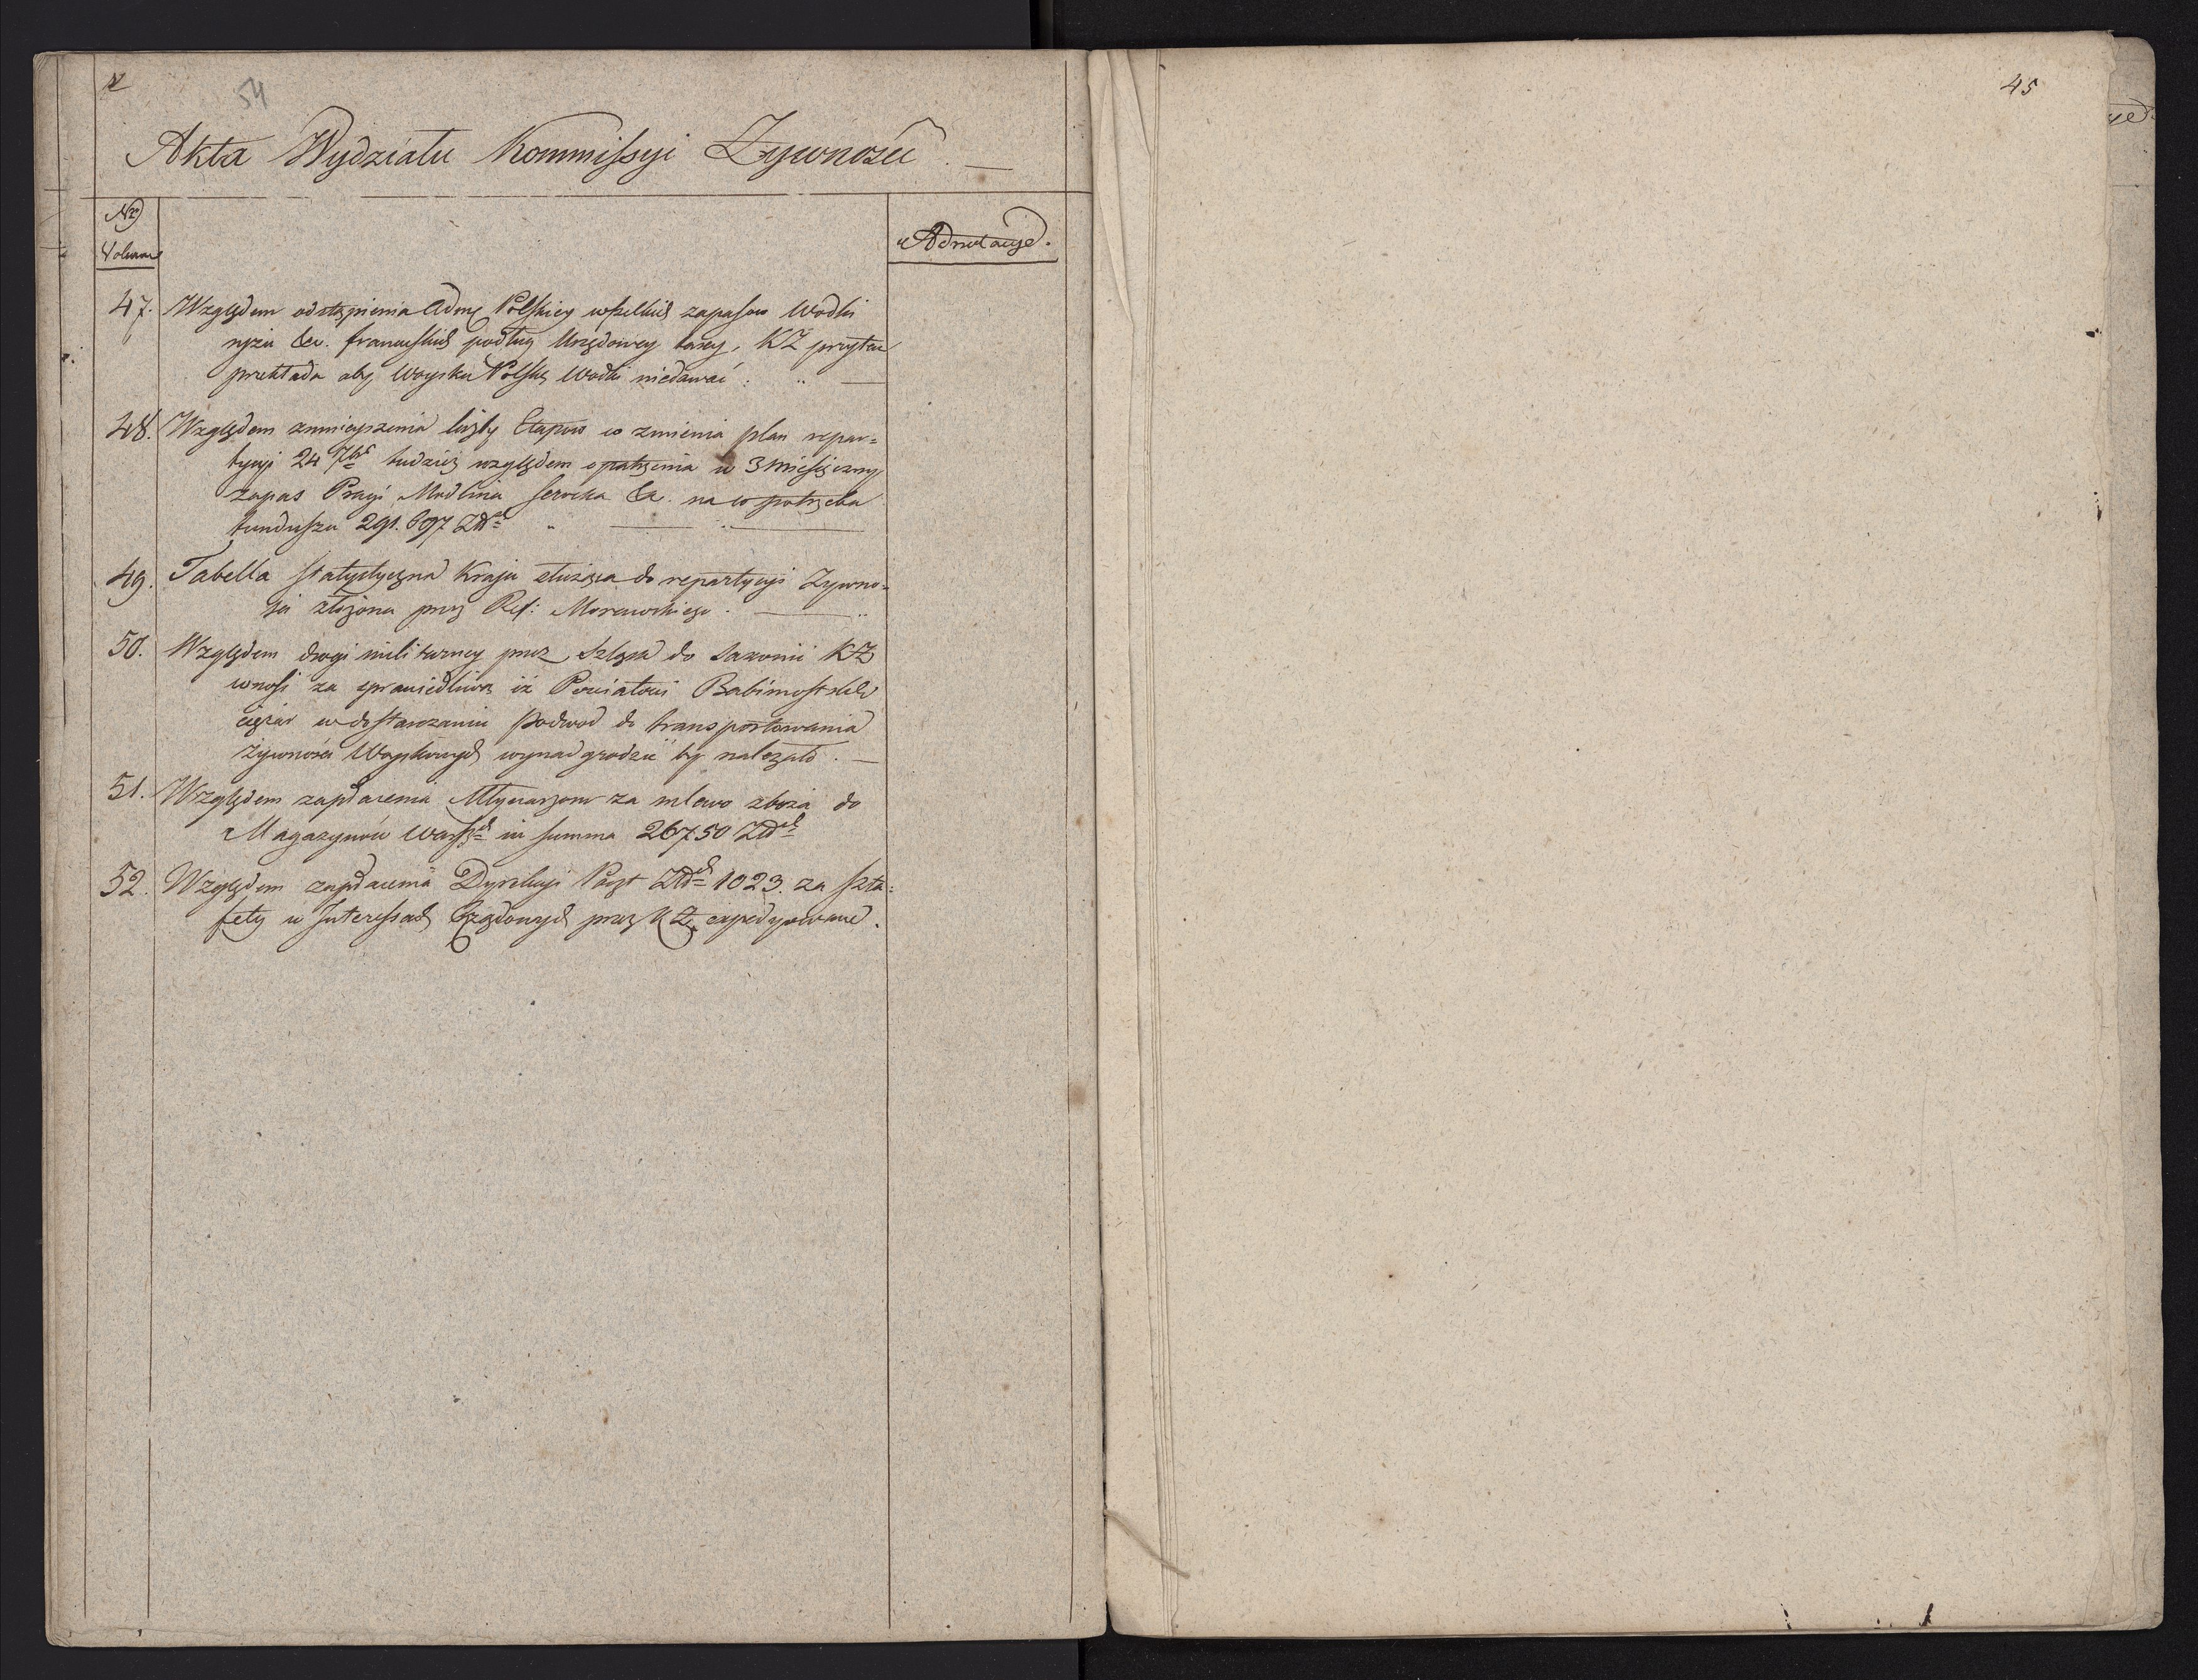 54
Akta Wydziału Kommissyi Zywności
Nro
Volum
Adnotacye.
47. Względem odstąpienia Adm: Polskiey wszelkich zapasow Wodki
ryżu &c. francuskich podług Urzędowey taxy, KZ przytem
przekłada aby Woysku Polsk: Wodki niedawać.
48. Względem zmnieyszenia liczby Etapów co zmienia plan repar=
tycyi 24 7br tudzież względem opatrzenia w 3 miesięczny
zapas Pragi Modlina Serocka &c. na co potrzeba
funduszu 291.697 Złch
49. Tabella statystyczna Kraju służąca do repartycyi Zywno=
ści złożona przez Ref: Morawskiego.
50. Względem drogi militarney przez Szląsk do Saxonii KZ
wnosi za sprawiedliwą iż Powiatowi Babimostskilu
ciężar w dostarczaniu podwod do transportowania
żywności Woyskowych wynadgrodzić by należało.
51. Względem zapłacenia Młynarzom za mlewo zboża do
Magazynów Warszch in Summa 26750 Złch
52. Względem zapłacenia Dyrekcyi Poczt Złch 1023. za szta=
fety w Interessach Rządowych przez KZ. expedyowane.
45